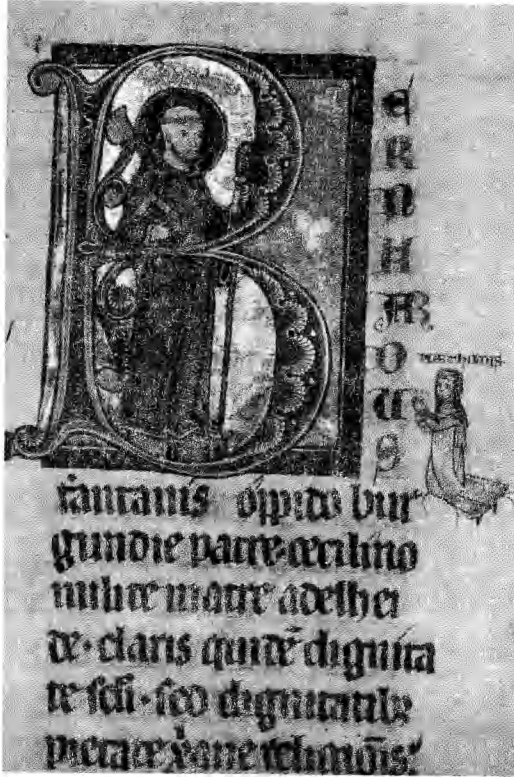 BERNHARDUS
fantanis oppido bur
gundie patre·tecilino
milite matre adelhei
de·claris quidē dignita
te scli·sed dignitatibꝫ
pietate xp̄ane religiōnis